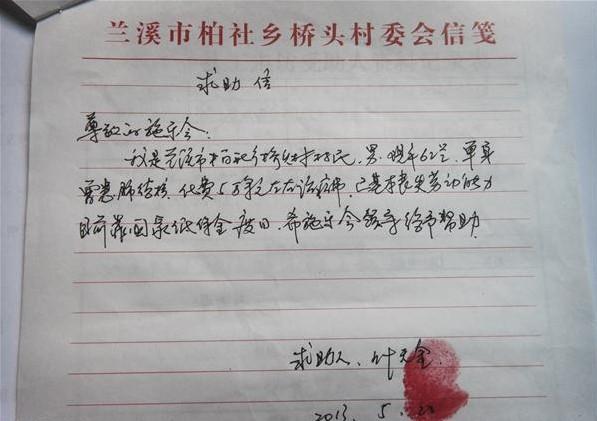 兰溪市柏社乡桥头村委会信笺
求助信
尊敬的施乐会:
我是兰溪市柏社乡桥头村村民,男,现年62岁,单身
曾患肺结核,化费5万余元左右治疗费,已基本丧失劳动能力
目前靠国家低保金度日,希施乐会能给予帮助
求助人、叶天金
2013. 5.